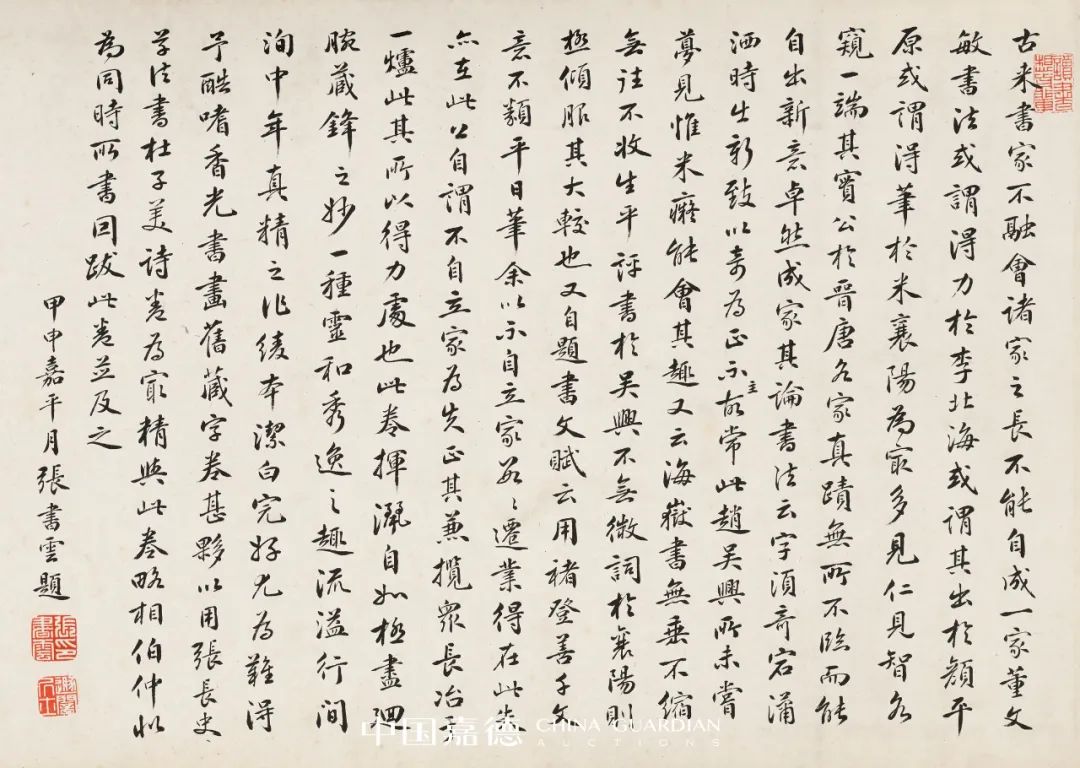 古来書家不融會諸家之長不能自成一家董文
敏書法或謂得力於李北海或謂其出於顏平
原或謂得筆於米襄陽為宷多見仁見智各
窺一端其實公於晉唐名家真蹟無所不臨而能
自出新意卓然成家其論書法云字須奇宕蕭
洒時出新致以奇為正不主故常此趙吳興所未嘗
夢見惟米癡能會其趣又云海嶽書無垂不縮
無往不收生平評書於吳興不無微詞於襄陽則
極傾服其大較也又自題書文賦云用褚登善千文
意不類平日筆余以不自立家故數遷業得在此失
亦在此公自謂不自立家為失正其兼攬眾長冶於
一爐此其所以得力處也此卷揮灑自如極盡迴
腕藏鋒之妙一種靈和秀逸之趣流溢行間
洵中年真精之作綾本潔白完好尤為難得
予酷嗜香光書畫舊藏字卷甚夥以用張長史
草法書杜子美詩卷為宷精與此卷略相伯仲似
為同時所書因跋此卷並及之
甲申嘉平月張書雲題
中国嘉德 CHINA GUARDIAN
AUCTIONS